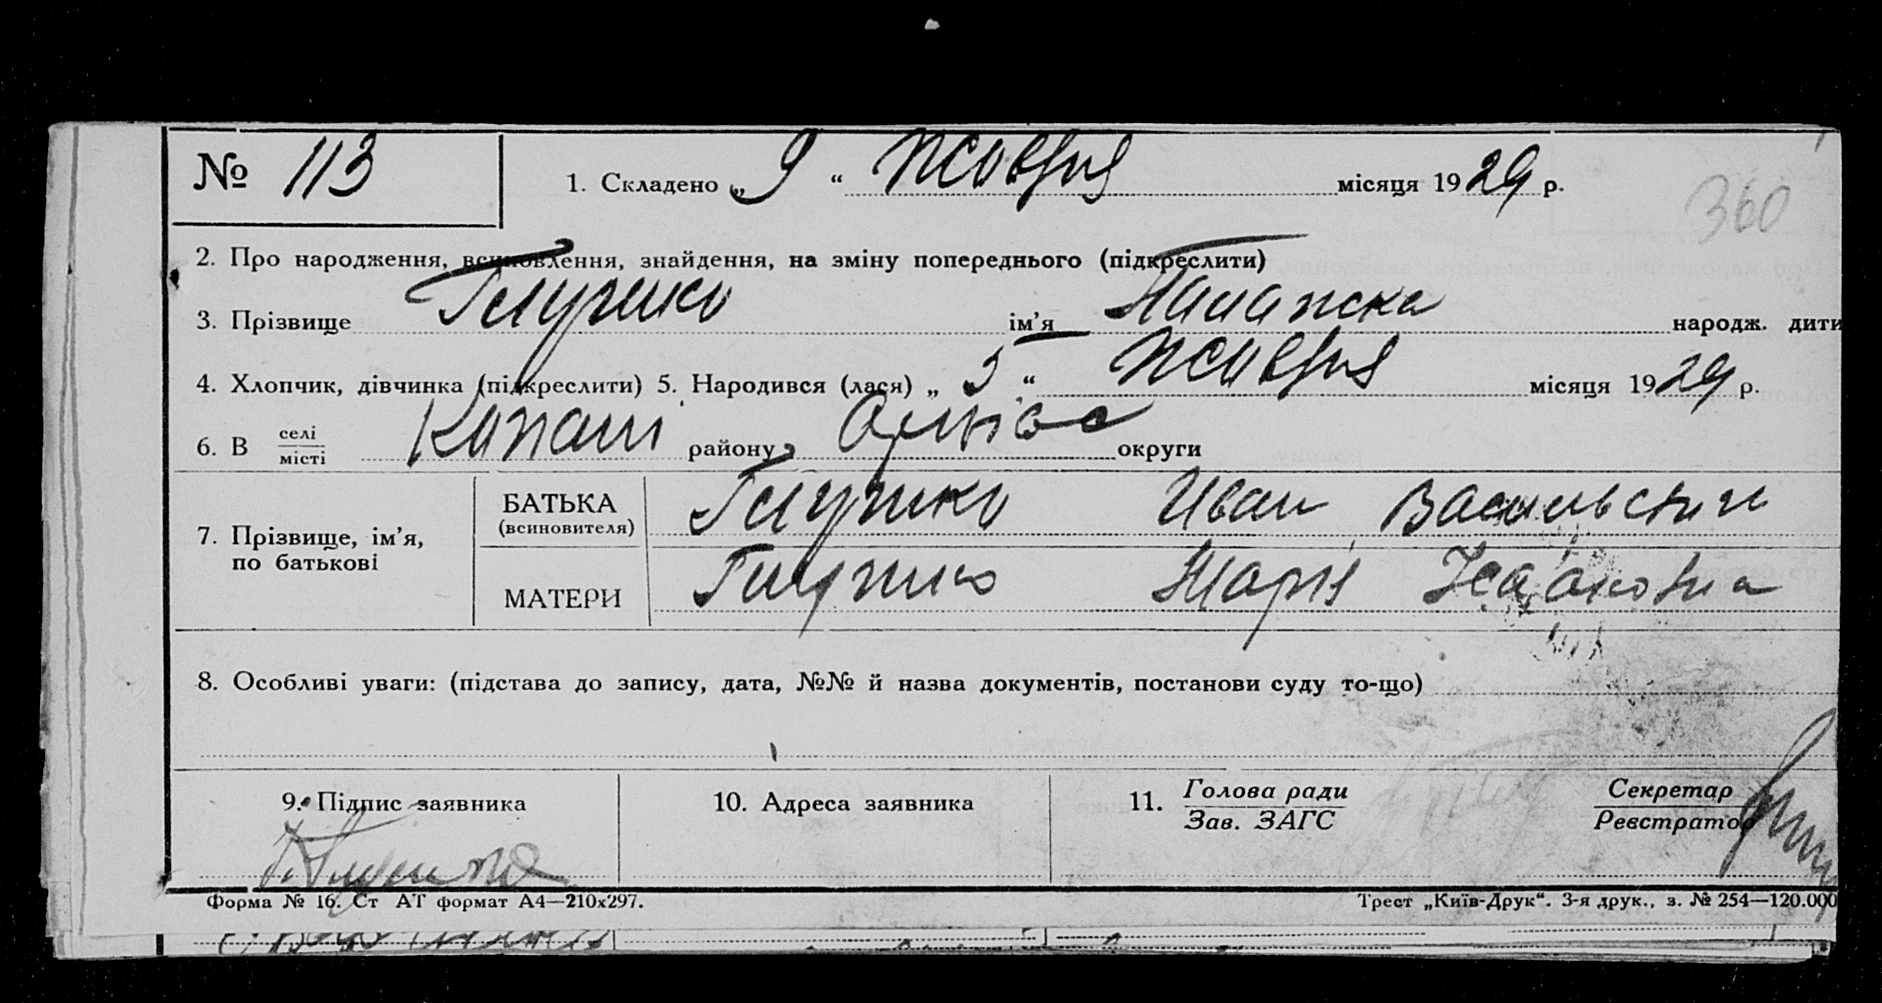 № 113 1. Складено „ 9 “ Жовтня місяця 1929 р.
360
2. Про народження, всиновлення, знайдення, на зміну попереднього (підкреслити)
3. Прізвище Глушко ім’я Палажка народж. дити
4. Хлопчик, дівчинка (підкреслити) 5. Народився (лася) „ 5 “ Жовтня місяця 1929 р.
6. В селі місті Копані району округи
7. Прізвище, ім’я, по батькові
БАТЬКА (всиновителя) Глушко Иван Васильевич
МАТЕРИ Глушко Марія
8. Особливі уваги: (підстава до запису, дата, №№ й назва документів, постанови суду то-що)
9. Підпис заявника 10. Адреса заявника 11. Голова ради Зав. ЗАГС Секретар Реєстратор
Форма № 16. Ст АТ формат А4—210х297. Трест „Київ-Друк“. 3-я друк., з. № 254—120.000